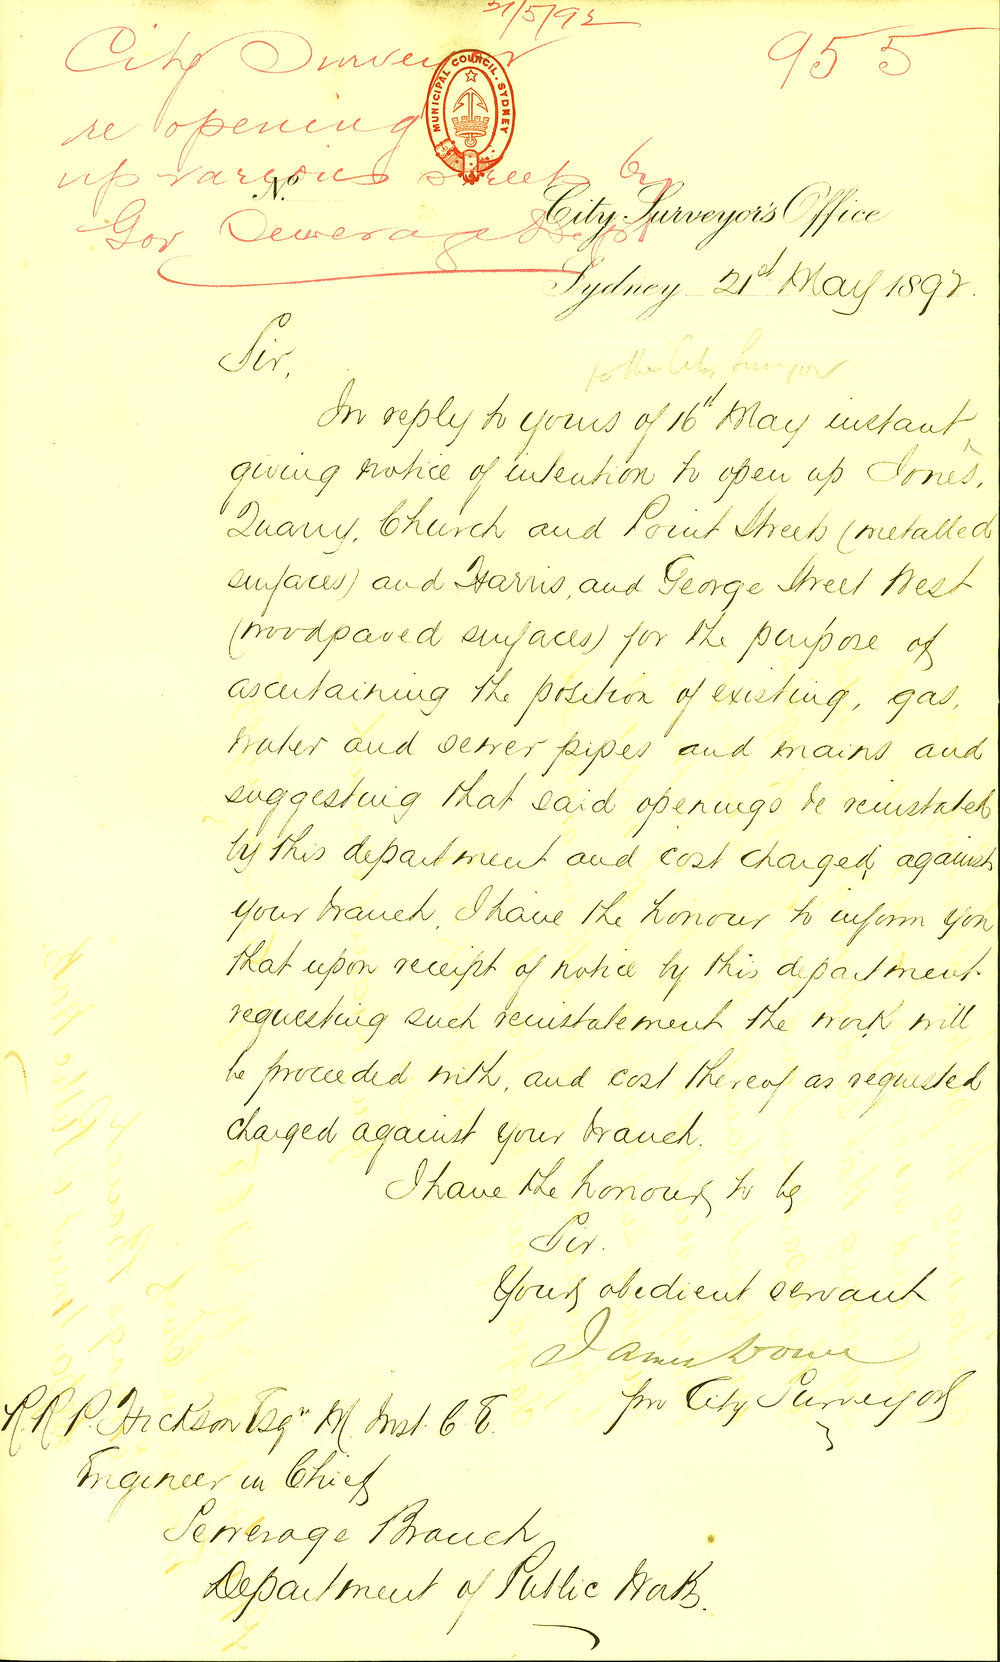 21/5/92
955
City Surveyor
re opening
up various streets by
Gov Sewerage Dept
MUNICIPAL COUNCIL. SYDNEY
No.
City Surveyor's Office
Sydney 21st May 1892.
Sir,
to the City Surveyor
In reply to yours of 16th May instant
giving notice of intention to open up Jones,
Quarry, Church and Point Streets (metalled
surfaces) and Harris, and George Street West
(woodpaved surfaces) for the purpose of
ascertaining the position of existing, gas,
water and sewer pipes and mains and
suggesting that said openings be reinstated
by this department and cost charged against
your branch, I have the honour to inform you
that upon receipt of notice by this department
requesting such reinstatement the work will
be proceeded with, and cost thereof as requested
charged against your branch.
I have the honour to be
Sir.
Your obedient servant
James
pro City Surveyor
R. R. P. Hickson Esqr M. Inst. C. E.
Engineer in Chief
Sewerage Branch
Department of Public Works.